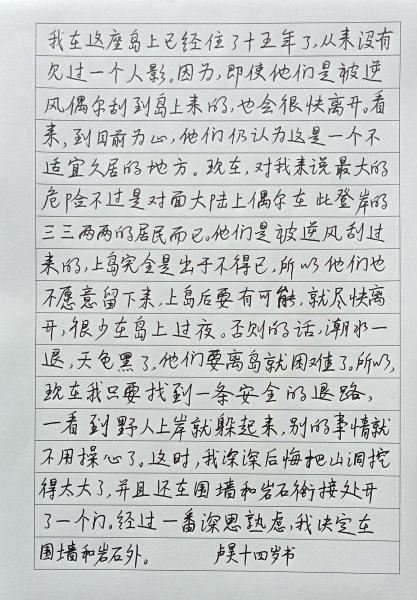 我在这座岛上已经住了十五年了，从来没有
见过一个人影。因为，即使他们是被逆
风偶尔刮到岛上来的，也会很快离开。看
来，到目前为止，他们仍认为这是一个不
适宜久居的地方。现在，对我来说最大的
危险不过是对面大陆上偶尔在此登岸的
三三两两的居民而已。他们是被逆风刮过
来的，上岛完全是出于不得已，所以他们也
不愿意留下来，上岛后要有可能，就尽快离
开，很少在岛上过夜。否则的话，潮水一
退，天色黑了，他们要离岛就困难了。所以，
现在我只要找到一条安全的退路，
一看到野人上岸就躲起来，别的事情就
不用操心了。这时，我深深后悔把山洞挖
得太大了，并且还在围墙和岩石衔接处开
了一个门。经过一番深思熟虑，我决定在
围墙和岩石外。 卢昊十四岁书